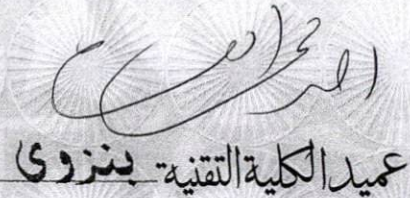 عميد الكلية التقنية بنزوى